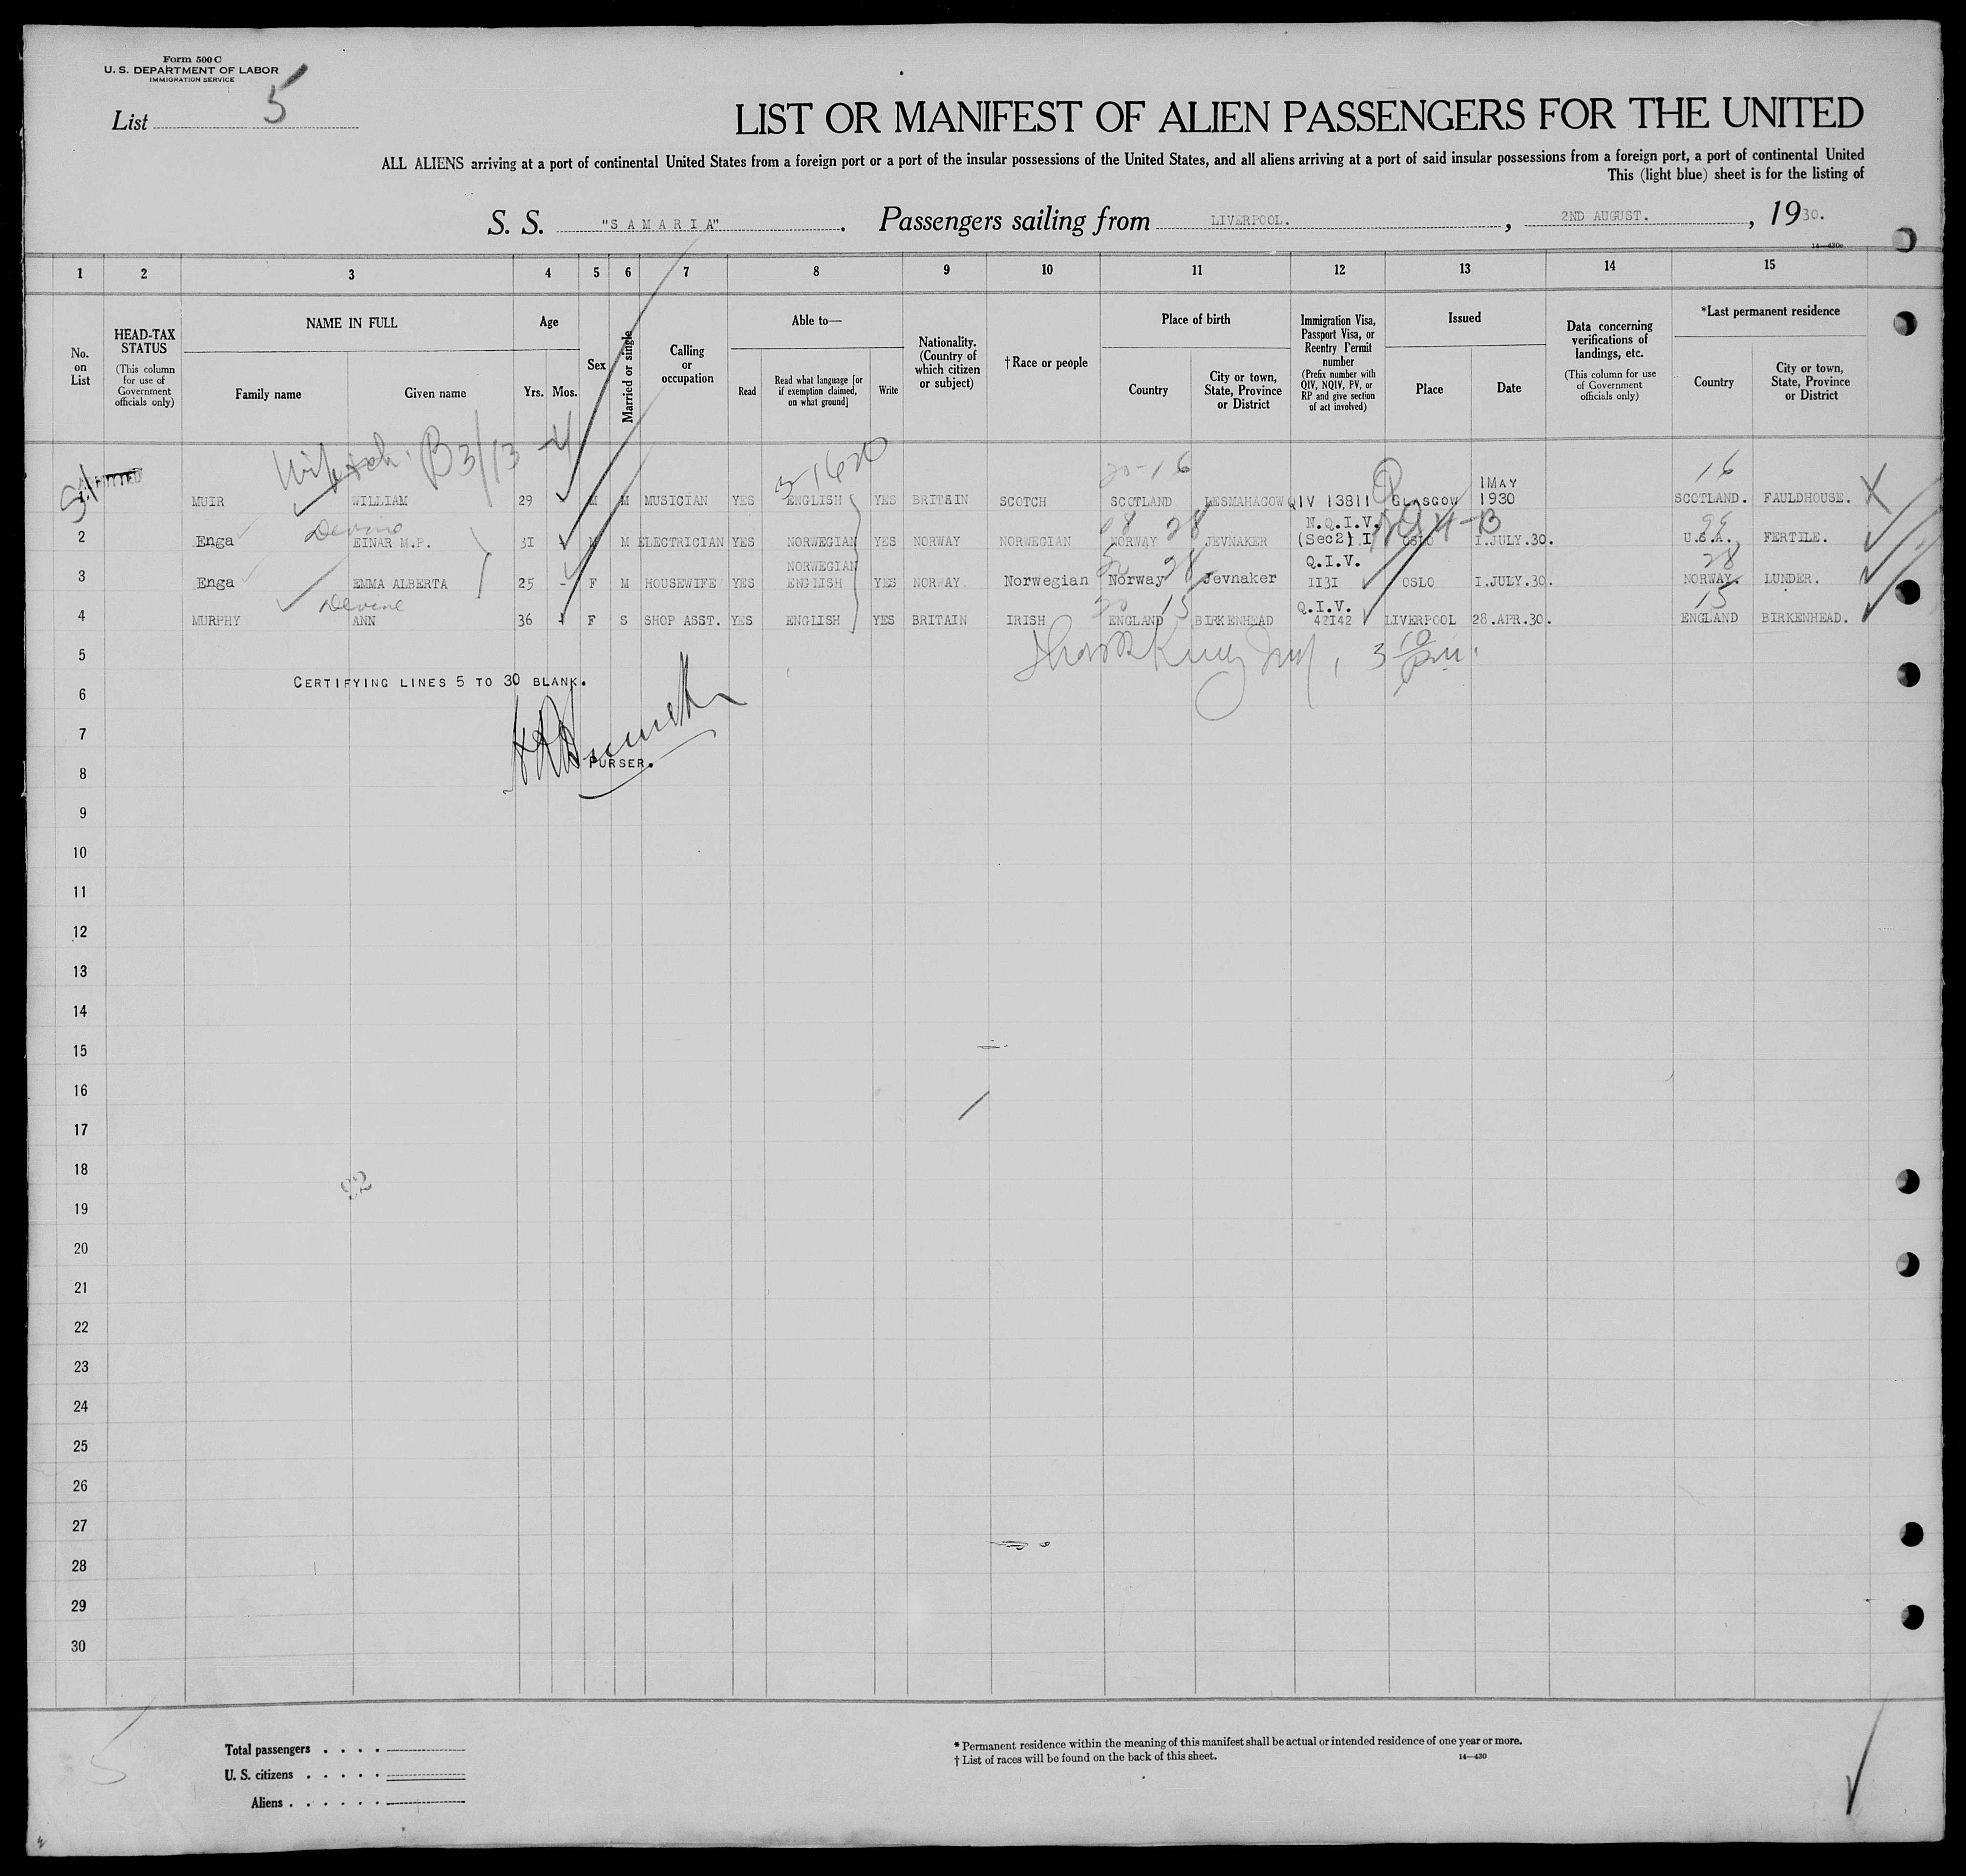 Form 500 C
U. S. DEPARTMENT OF LABOR
IMMIGRATION SERVICE
List 5
LIST OR MANIFEST OF ALIEN PASSENGERS FOR THE UNITED
ALL ALIENS arriving at a port of continental United States from a foreign port or a port of the insular possessions of the United States, and all aliens arriving at a port of said insular possessions from a foreign port, a port of continental United
This (light blue) sheet is for the listing of
S. S. "SAMARIA". Passengers sailing from LIVERPOOL., 2ND AUGUST., 1930.
14—430c
1 2 3 4 5 6 7 8 9 10 11 12 13 14 15
No. on List
HEAD-TAX STATUS (This column for use of Government officials only)
NAME IN FULL
Family name Given name
Age
Yrs. Mos.
Sex
Married or single
Calling or occupation
Able to—
Read Read what language [or if exemption claimed, on what ground] Write
Nationality. (Country of which citizen or subject)
†Race or people
Place of birth
Country City or town, State, Province or District
Immigration Visa, Passport Visa, or Reentry Permit number (Prefix number with QIV, NQIV, PV, or RP and give section of act involved)
Issued
Place Date
Data concerning verifications of landings, etc. (This column for use of Government officials only)
*Last permanent residence
Country City or town, State, Province or District
B3/13
3-1620 20-16 16
MUIR WILLIAM 29 M M MUSICIAN YES ENGLISH YES BRITAIN SCOTCH SCOTLAND LESMAHAGOW QIV 13811 GLASGOW 1MAY 1930 SCOTLAND. FAULDHOUSE.
Devine 28
2 Enga EINAR M.P. 31 M M ELECTRICIAN YES NORWEGIAN YES NORWAY NORWEGIAN NORWAY JEVNAKER N.Q.I.V. (Sec2) I OSLO I.JULY.30. U.S.A. FERTILE.
28 28
3 Enga EMMA ALBERTA 25 - F M HOUSEWIFE YES NORWEGIAN ENGLISH YES NORWAY. Norwegian Norway Jevnaker Q.I.V. II3I OSLO I.JULY.30. NORWAY. LUNDER.
Devine 15 15
4 MURPHY ANN 36 F S SHOP ASST. YES ENGLISH YES BRITAIN IRISH ENGLAND BIRKENHEAD Q.I.V. 42I42 LIVERPOOL 28.APR.30. ENGLAND BIRKENHEAD.
5
CERTIFYING LINES 5 TO 30 BLANK.
6
7
PURSER.
8
9
10
11
12
13
14
15
16
17
18
92
19
20
21
22
23
24
25
26
27
28
29
30
5
Total passengers . . . .
U. S. citizens . . . . .
Aliens . . . . . .
* Permanent residence within the meaning of this manifest shall be actual or intended residence of one year or more.
† List of races will be found on the back of this sheet.
14—430